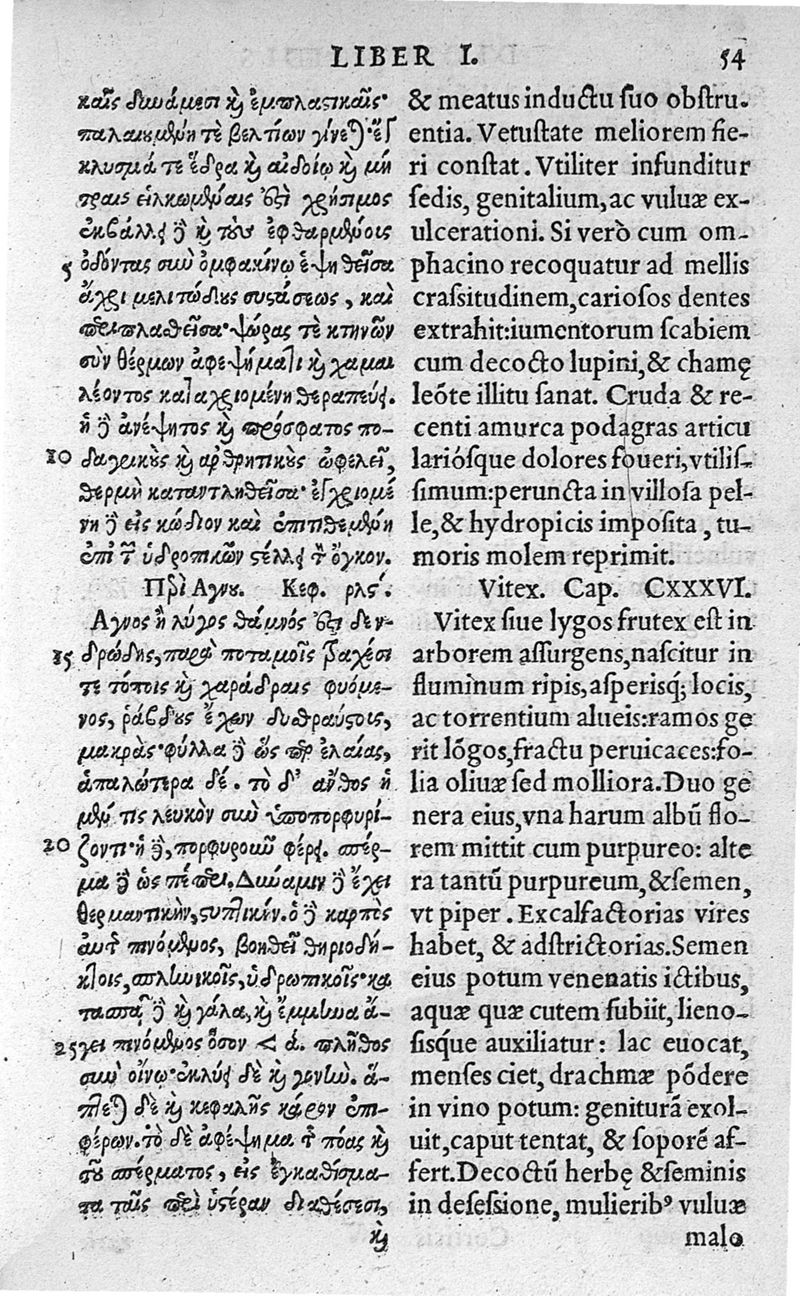 LIBER I. 54
καῖς δυνάμεσι καὶ ἐμπλαστικαῖς·
παλαιουμένη τὲ βελτίων γίνεται· ἔς
κλυσμά τε ἕδρα καὶ αἰδοίῳ καὶ μή
τραις εἱλκωμέναις ἐστὶ χρήσιμος
ἐκβάλλει δὲ καὶ τοὺς ἐφθαρμένοις
5 ὀδόντας σιωὺ ὀμφακίνῳ ἑψηθεῖσα
ἄχρι μελιτώδους συστάσεως, καὶ
περιπλαθεῖσα· ψώρας τὲ κτηνῶν
σὺν θέρμων ἀφεψήματι καὶ χαμαι
λέοντος καταχριομένη θεραπεύει.
ἡ δὲ ἀνέψητος καὶ πρόσφατος πο-
10 δαγρικοὺς καὶ αρθρητικοὺς ὠφελεῖ,
θερμὴ καταντληθεῖσα· ἐγχριομέ
νη δὲ εἰς κώδιον καὶ ἐπιτιθεμένη
ἐπὶ τῶν ὑδροπικῶν στέλλει τὸν ὄγκον.
Περὶ Αγνου. Κεφ. ρλς΄.
Αγνος ἢ λύγος θάμνός ἐστι δεν-
15 δρώδης, παρὰ ποταμοῖς τραχέσι
τε τόποις καὶ χαράδραις φυόμε-
νος, ῥάβδους ἔχων δυθραύστοις,
μακρὰς· φύλλα δὲ ὡς περ ἐλαίας,
ἁπαλώτερα δέ. τὸ δ' ἄνθος ἡ
μέν τις λευκὸν σὺν ὑποπορφυρί-
20 ζοντι· ἡ δὲ, πορφυροῦν φέρει. σπέρ-
μα δὲ ὡς πέπερι. Δύναμιν δὲ ἔχει
θερμαντικὴν, στυπτικήν. ὁ δὲ καρπὸς
αὐτῆς πινόμενος, βοηθεῖ θηριοδή-
κτοις, σπληνικοῖς, ὑδρωπικοῖς· κα
τασπᾷ δὲ καὶ γάλα, καὶ ἔμμηνα ἄ-
25 γει πινόμενος ὅσον < ά. πλῆθος
σὺν οἴνῳ· ἐκλύει δὲ καὶ γονήν. ἅ-
πτεται δὲ καὶ κεφαλῆς κάρον ἐπι-
φέρων. τὸ δὲ ἀφέψημα τῆς πόας καὶ
τοῦ σπέρματος, εἰς ἐγκαθίσμα-
τα ταῖς περὶ ὑστέραν διαθέσεσι,
καὶ
& meatus inductu suo obstru-
entia. Vetustate meliorem fie-
ri constat. Vtiliter infunditur
sedis, genitalium, ac vuluæ ex-
ulcerationi. Si verò cum om-
phacino recoquatur ad mellis
crassitudinem, cariosos dentes
extrahit: iumentorum scabiem
cum decocto lupini, & chamę
leōte illitu sanat. Cruda & re-
centi amurca podagras articu
lariósque dolores foueri, vtilis-
simum: peruncta in villosa pel-
le, & hydropicis imposita, tu-
moris molem reprimit.
Vitex. Cap. CXXXVI.
Vitex siue lygos frutex est in
arborem assurgens, nascitur in
fluminum ripis, asperisq; locis,
ac torrentium alueis: ramos ge
rit lōgos, fractu peruicaces: fo-
lia oliuæ sed molliora. Duo ge
nera eius, vna harum albū flo-
rem mittit cum purpureo: alte
ra tantū purpureum, & semen,
vt piper. Excalfactorias vires
habet, & adstrictorias. Semen
eius potum venenatis ictibus,
aquæ quæ cutem subiit, lieno-
sisque auxiliatur: lac euocat,
menses ciet, drachmæ pōdere
in vino potum: geniturā exol-
uit, caput tentat, & soporē af-
fert. Decoctū herbę & seminis
in desessione, mulierib⁹ vuluæ
malo